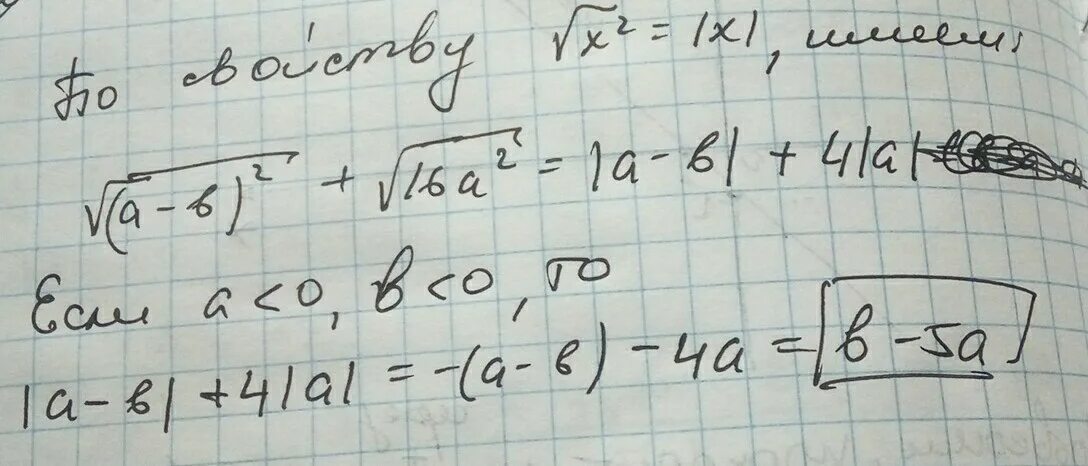 По свойству √x² = |x|, имеем:
√(a - в)² + √16a² = |a - в| + 4|a|
Если a < 0, в < 0, то
|a - в| + 4|a| = -(a - в) - 4a = в - 5a